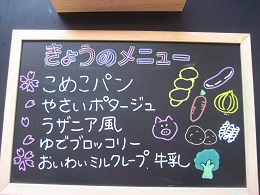 きょうのメニュー
こめこパン
やさいポタージュ
ラザニア風
ゆでブロッコリー
おいわいミルクレープ、牛乳